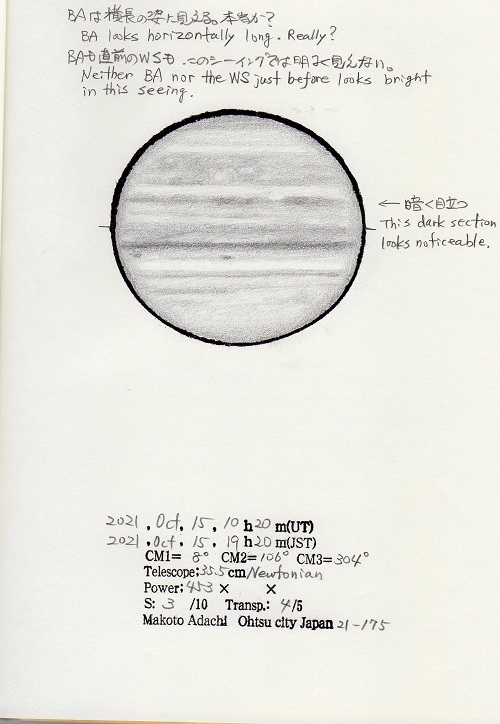 BAは横長の姿に見える。本当か?
BA looks horizontally long. Really?
BAも直前のWSも、このシーイングでは明るく見えない。
Neither BA nor the WS just before looks bright
in this seeing.
← 暗く目立つ
This dark section
looks noticeable.
2021 . Oct. 15, 10 h 20 m(UT)
2021 . Oct. 15, 19 h 20 m(JST)
CM1= 8° CM2= 106° CM3= 304°
Telescope; 35.5 cm/Newtonian
Power; 453 × ×
S: 3 /10 Transp.: 4/5
Makoto Adachi Ohtsu city Japan 21-175